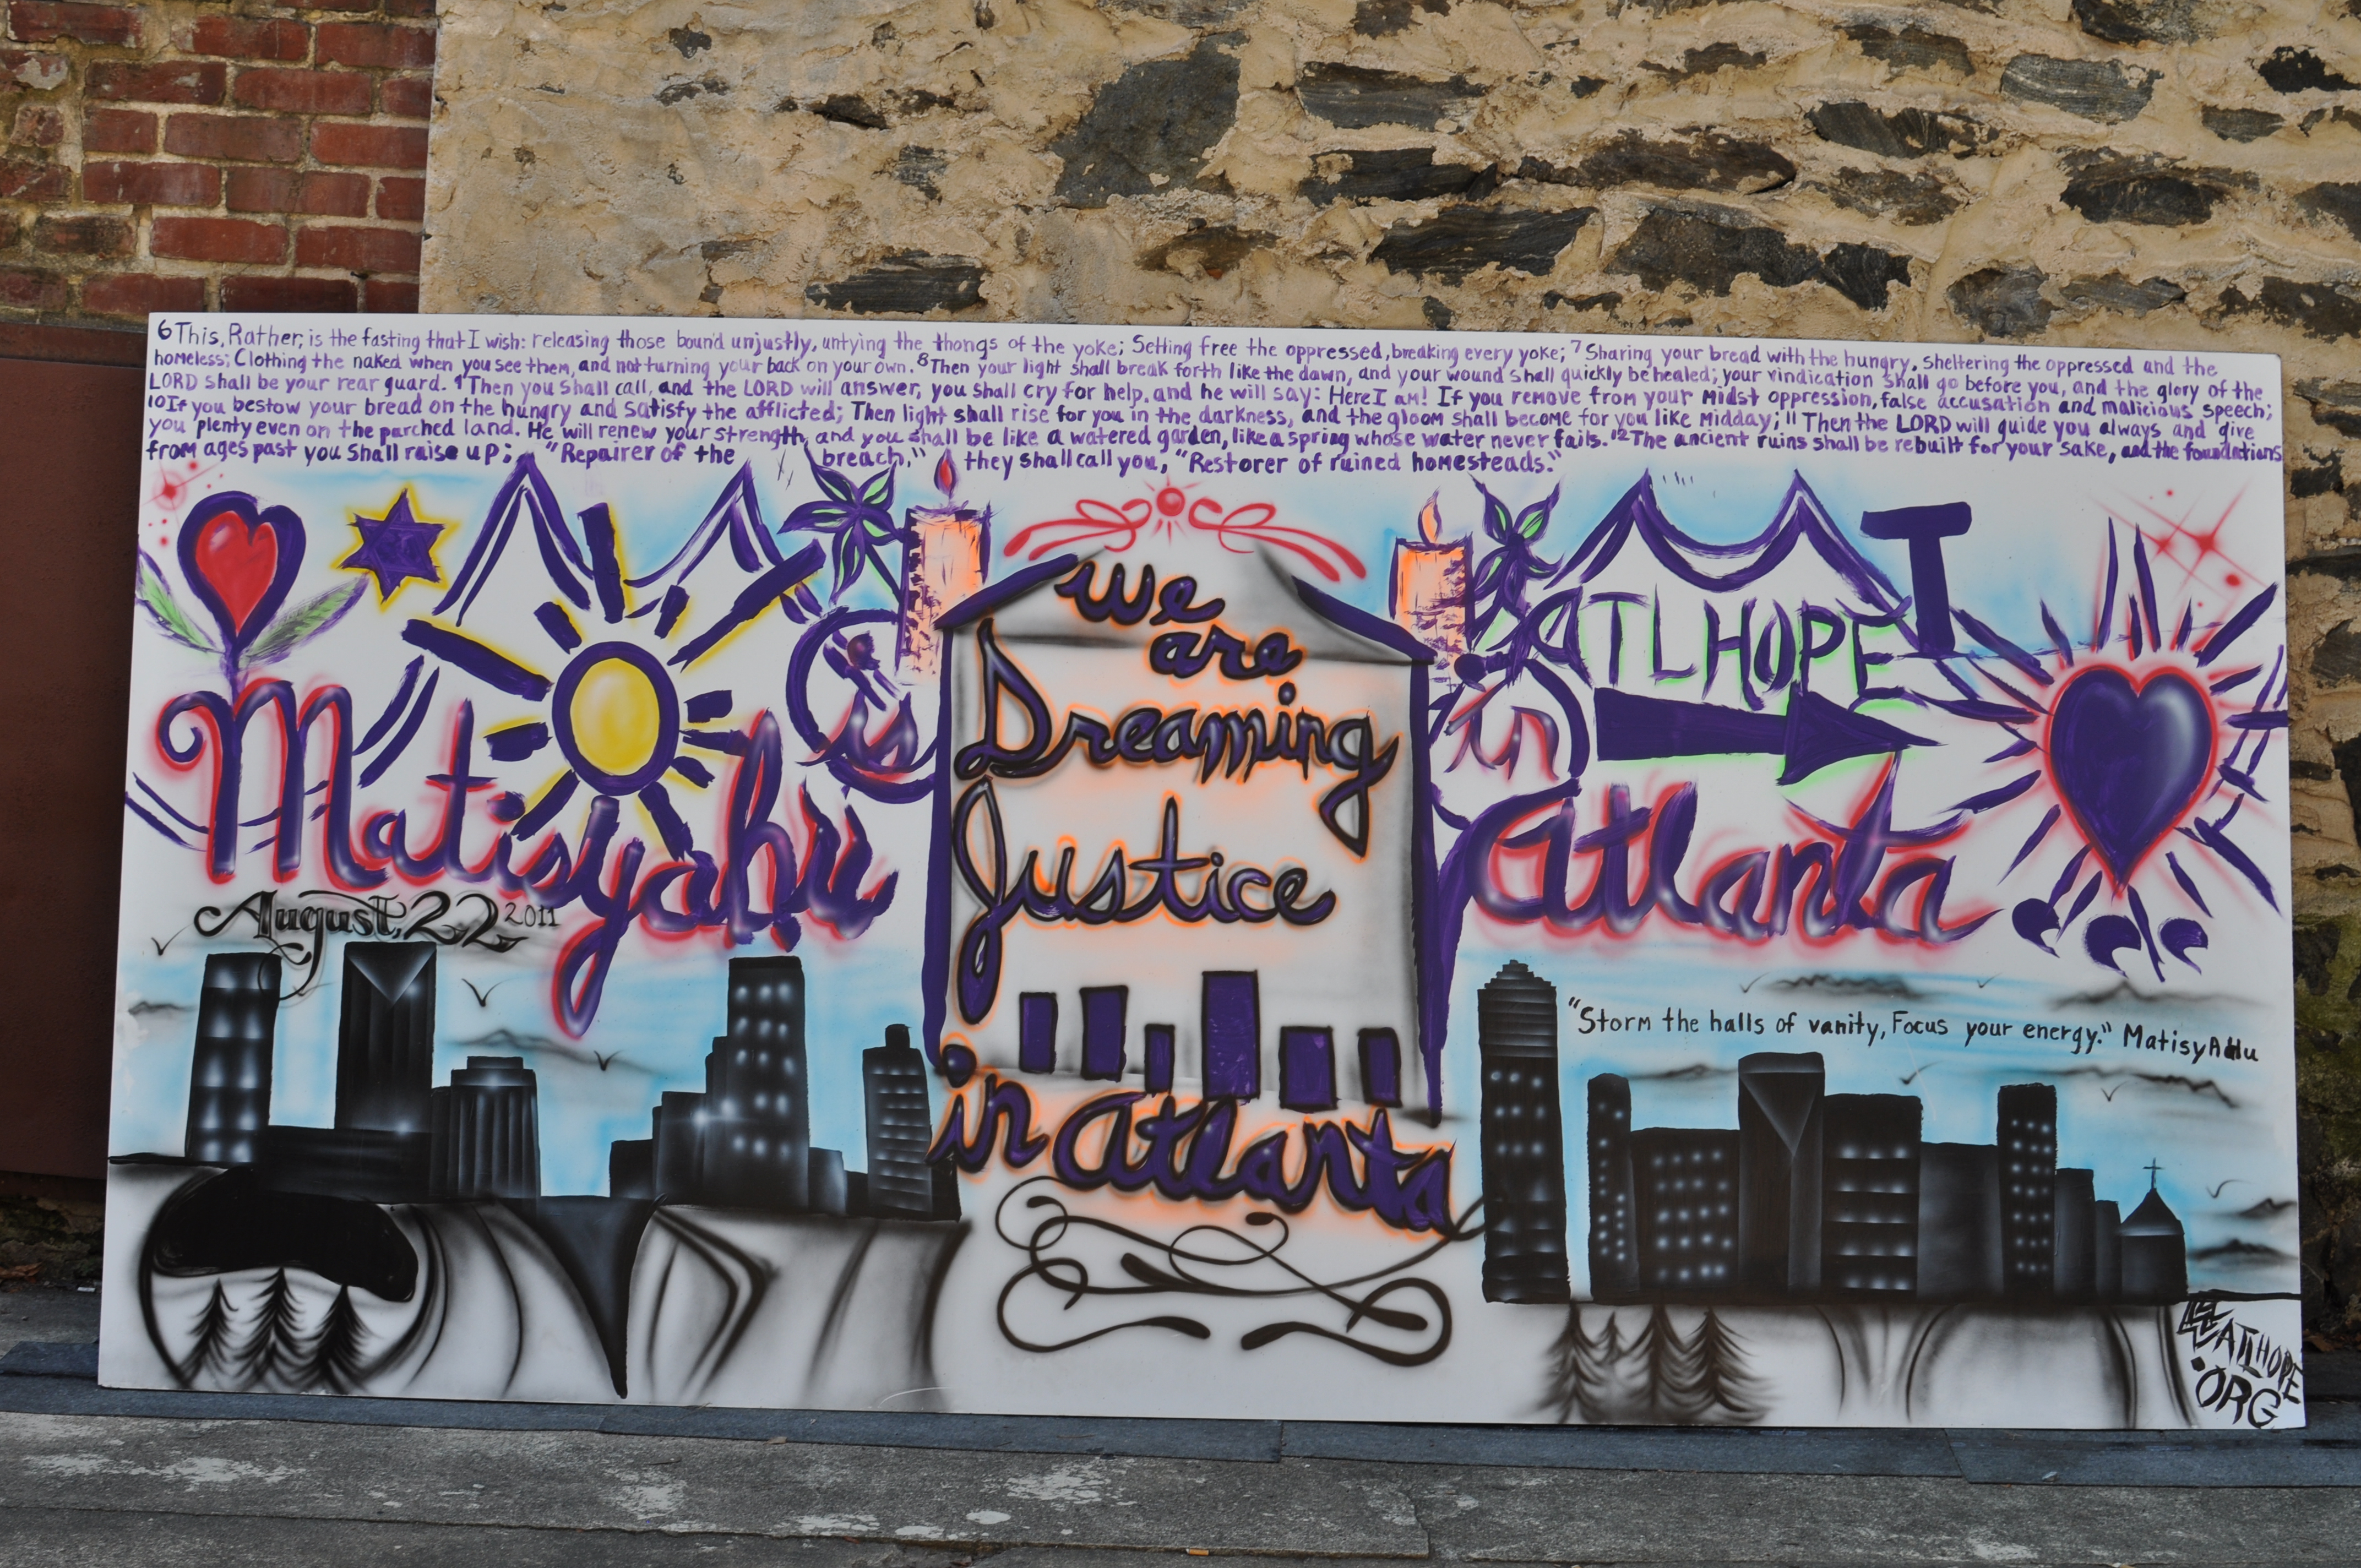 6 This, Rather, is the fasting that I wish: releasing those bound unjustly, untying the thongs of the yoke; Setting free the oppressed, breaking every yoke; 7 Sharing your bread with the hungry, sheltering the oppressed and the
homeless; Clothing the naked when you see them, and not turning your back on your own. 8 Then your light shall break forth like the dawn, and your wound shall quickly be healed; your vindication shall go before you, and the glory of the
LORD shall be your rear guard. 9 Then you shall call, and the LORD will answer, you shall cry for help, and he will say: Here I am! If you remove from your midst oppression, false accusation and malicious speech;
10 If you bestow your bread on the hungry and satisfy the afflicted; Then light shall rise for you in the darkness, and the gloom shall become for you like midday; 11 Then the LORD will guide you always and give
you plenty even on the parched land. He will renew your strength, and you shall be like a watered garden, like a spring whose water never fails. 12 The ancient ruins shall be rebuilt for your sake, and the foundations
from ages past you shall raise up; "Repairer of the breach," they shall call you, "Restorer of ruined homesteads."
Matisyahu
is
August, 22 2011
we
are
Dreaming
Justice
in Atlanta
ATLHOPE
in
Atlanta
"Storm the halls of vanity, Focus your energy." MatisyAHu
ATLHOPE
.ORG